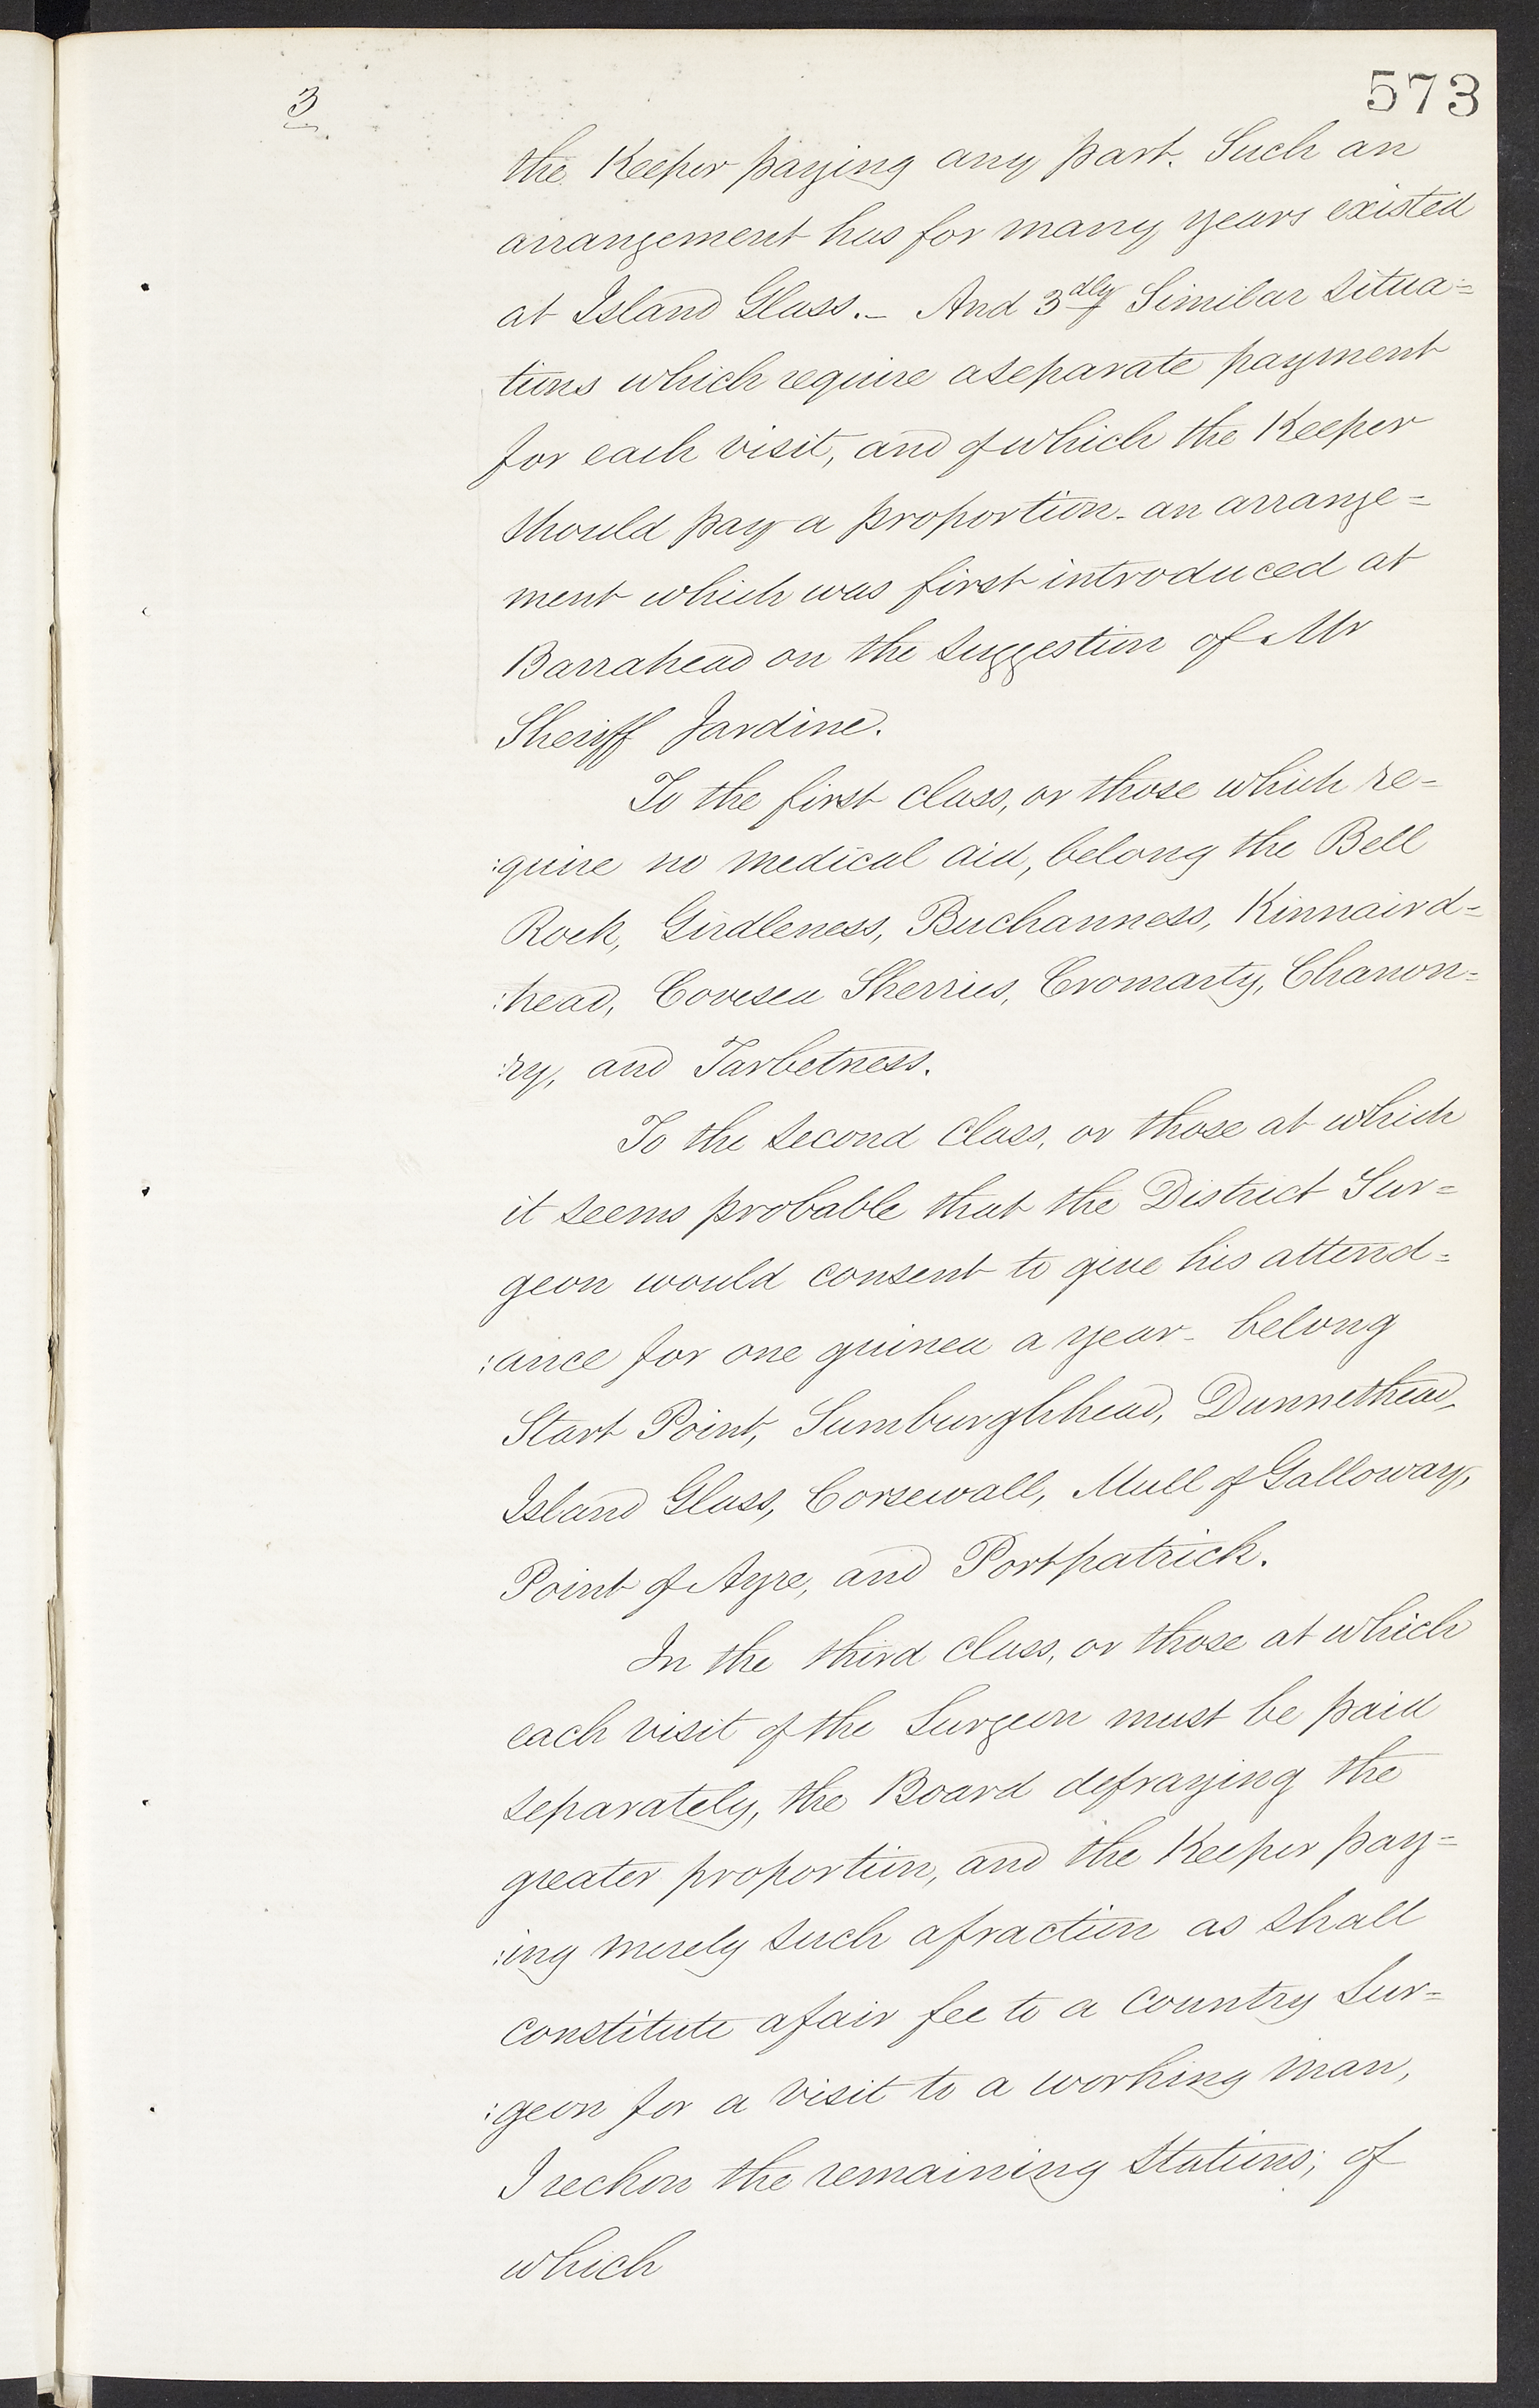 573
3
the Keeper paying any part. Such an
arrangement has for many years existed
at Island Glass.— And 3dly Similar situa=
tions which require a separate payment
for each visit, and of which the Keeper
should pay a proportion - an arrange=
ment which was first introduced at
Barrahead on the suggestion of Mr
Sheriff Jardine.
To the first class, or those which re=
:quire no medical aid, belong the Bell
Rock, Girdleness, Buchanness, Kinnaird=
:head, Covesea Skerries, Cromarty, Chanon=
:ry, and Tarbetness.
To the second class, or those at which
it seems probable that the District Sur=
geon would consent to give his attend=
:ance for one guinea a year - belong
Start Point, Sumburghhead, Dunnethead,
Island Glass, Corsewall, Mull of Galloway,
Point of Ayre, and Portpatrick.
In the third class, or those at which
each visit of the Surgeon must be paid
separately, the Board defraying the
greater proportion, and the Keeper pay=
:ing merely such a fraction as shall
constitute a fair fee to a country Sur=
:geon for a visit to a working man,
I reckon the remaining Stations; of
which